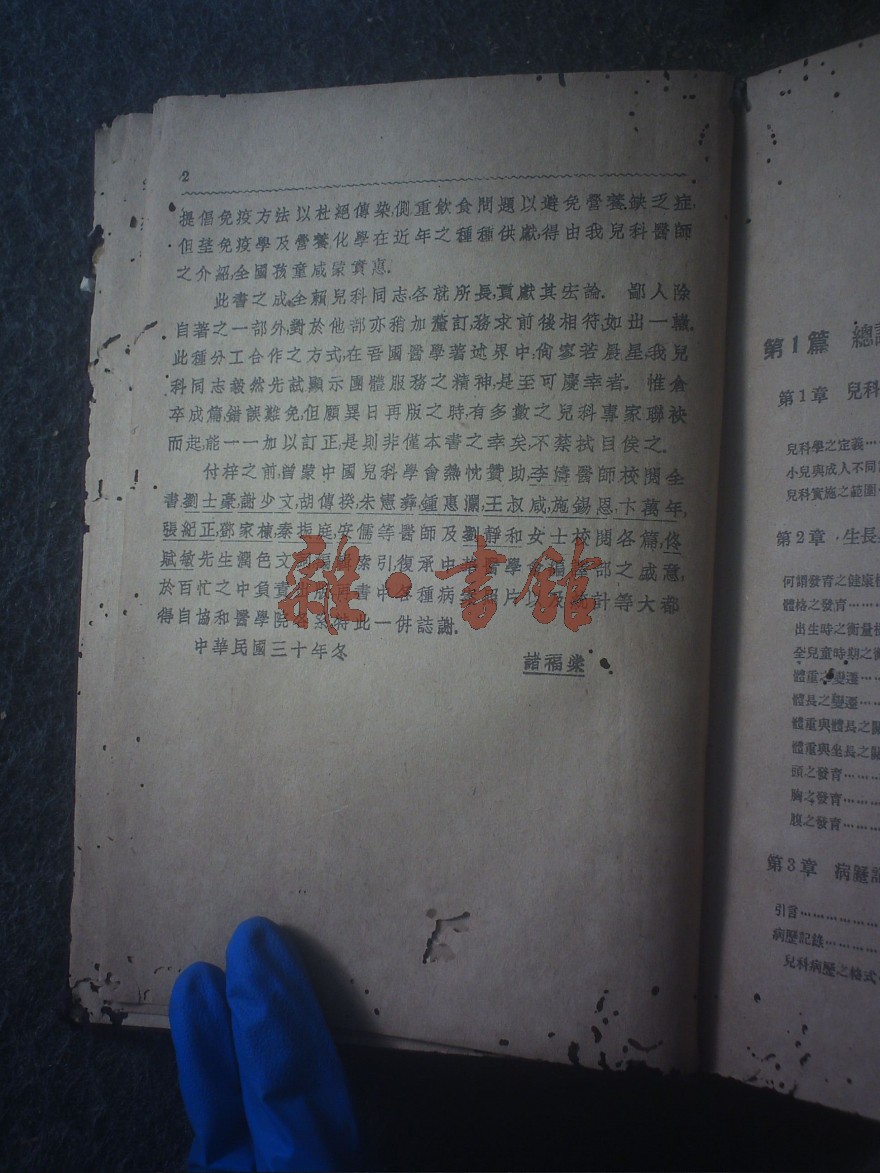 2
提倡免疫方法以杜絕傳染,側重飲食問題以避免營養缺乏症,
但莖免疫學及營養化學在近年之種種供獻,得由我兒科醫師
之介紹,全國孩童咸蒙實惠.
此書之成全賴兒科同志各就所長,貢獻其宏論. 鄙人除
自著之一部外,對於他部亦稍加釐訂,務求前後相符,如出一轍.
此種分工合作之方式,在吾國醫學著述界中,尚寥若晨星,我兒
科同志毅然先試顯示團體服務之精神,是至可慶幸者. 惟倉
卒成篇,錯誤難免,但願異日再版之時,有多數之兒科專家聯袂
而起,能一一加以訂正,是則非僅本書之幸矣,不禁拭目俟之.
付梓之前,曾蒙中國兒科學會熱忱贊助,李濤醫師校閱全
書,劉士豪,謝少文,胡傳揆,朱憲彝,鍾惠瀾,王叔咸,施錫恩,卞萬年,
張紀正,鄧家棟,秦振庭,安儒等醫師及劉靜和女士校閱各篇,佟
賦敏先生潤色文 索引,復承中 醫學會 部之盛意,
於百忙之中負責 書中各種病 照片以及統計等大都
得自協和醫學院 特此一併誌謝.
中華民國三十年冬
諸福棠
雜·書館
第1篇 總
第1章 兒科
兒科學之定義……
小兒與成人不同
兒科實施之範圍
第2章 生長
何謂發育之健康
體格之發育……
出生時之衡量
全兒童時期之
體重之變遷……
體長之變遷……
體重與體長之
體重與坐長之
頭之發育……
胸之發育……
腹之發育……
第3章 病歷
引言……
病歷記錄……
兒科病歷之格式